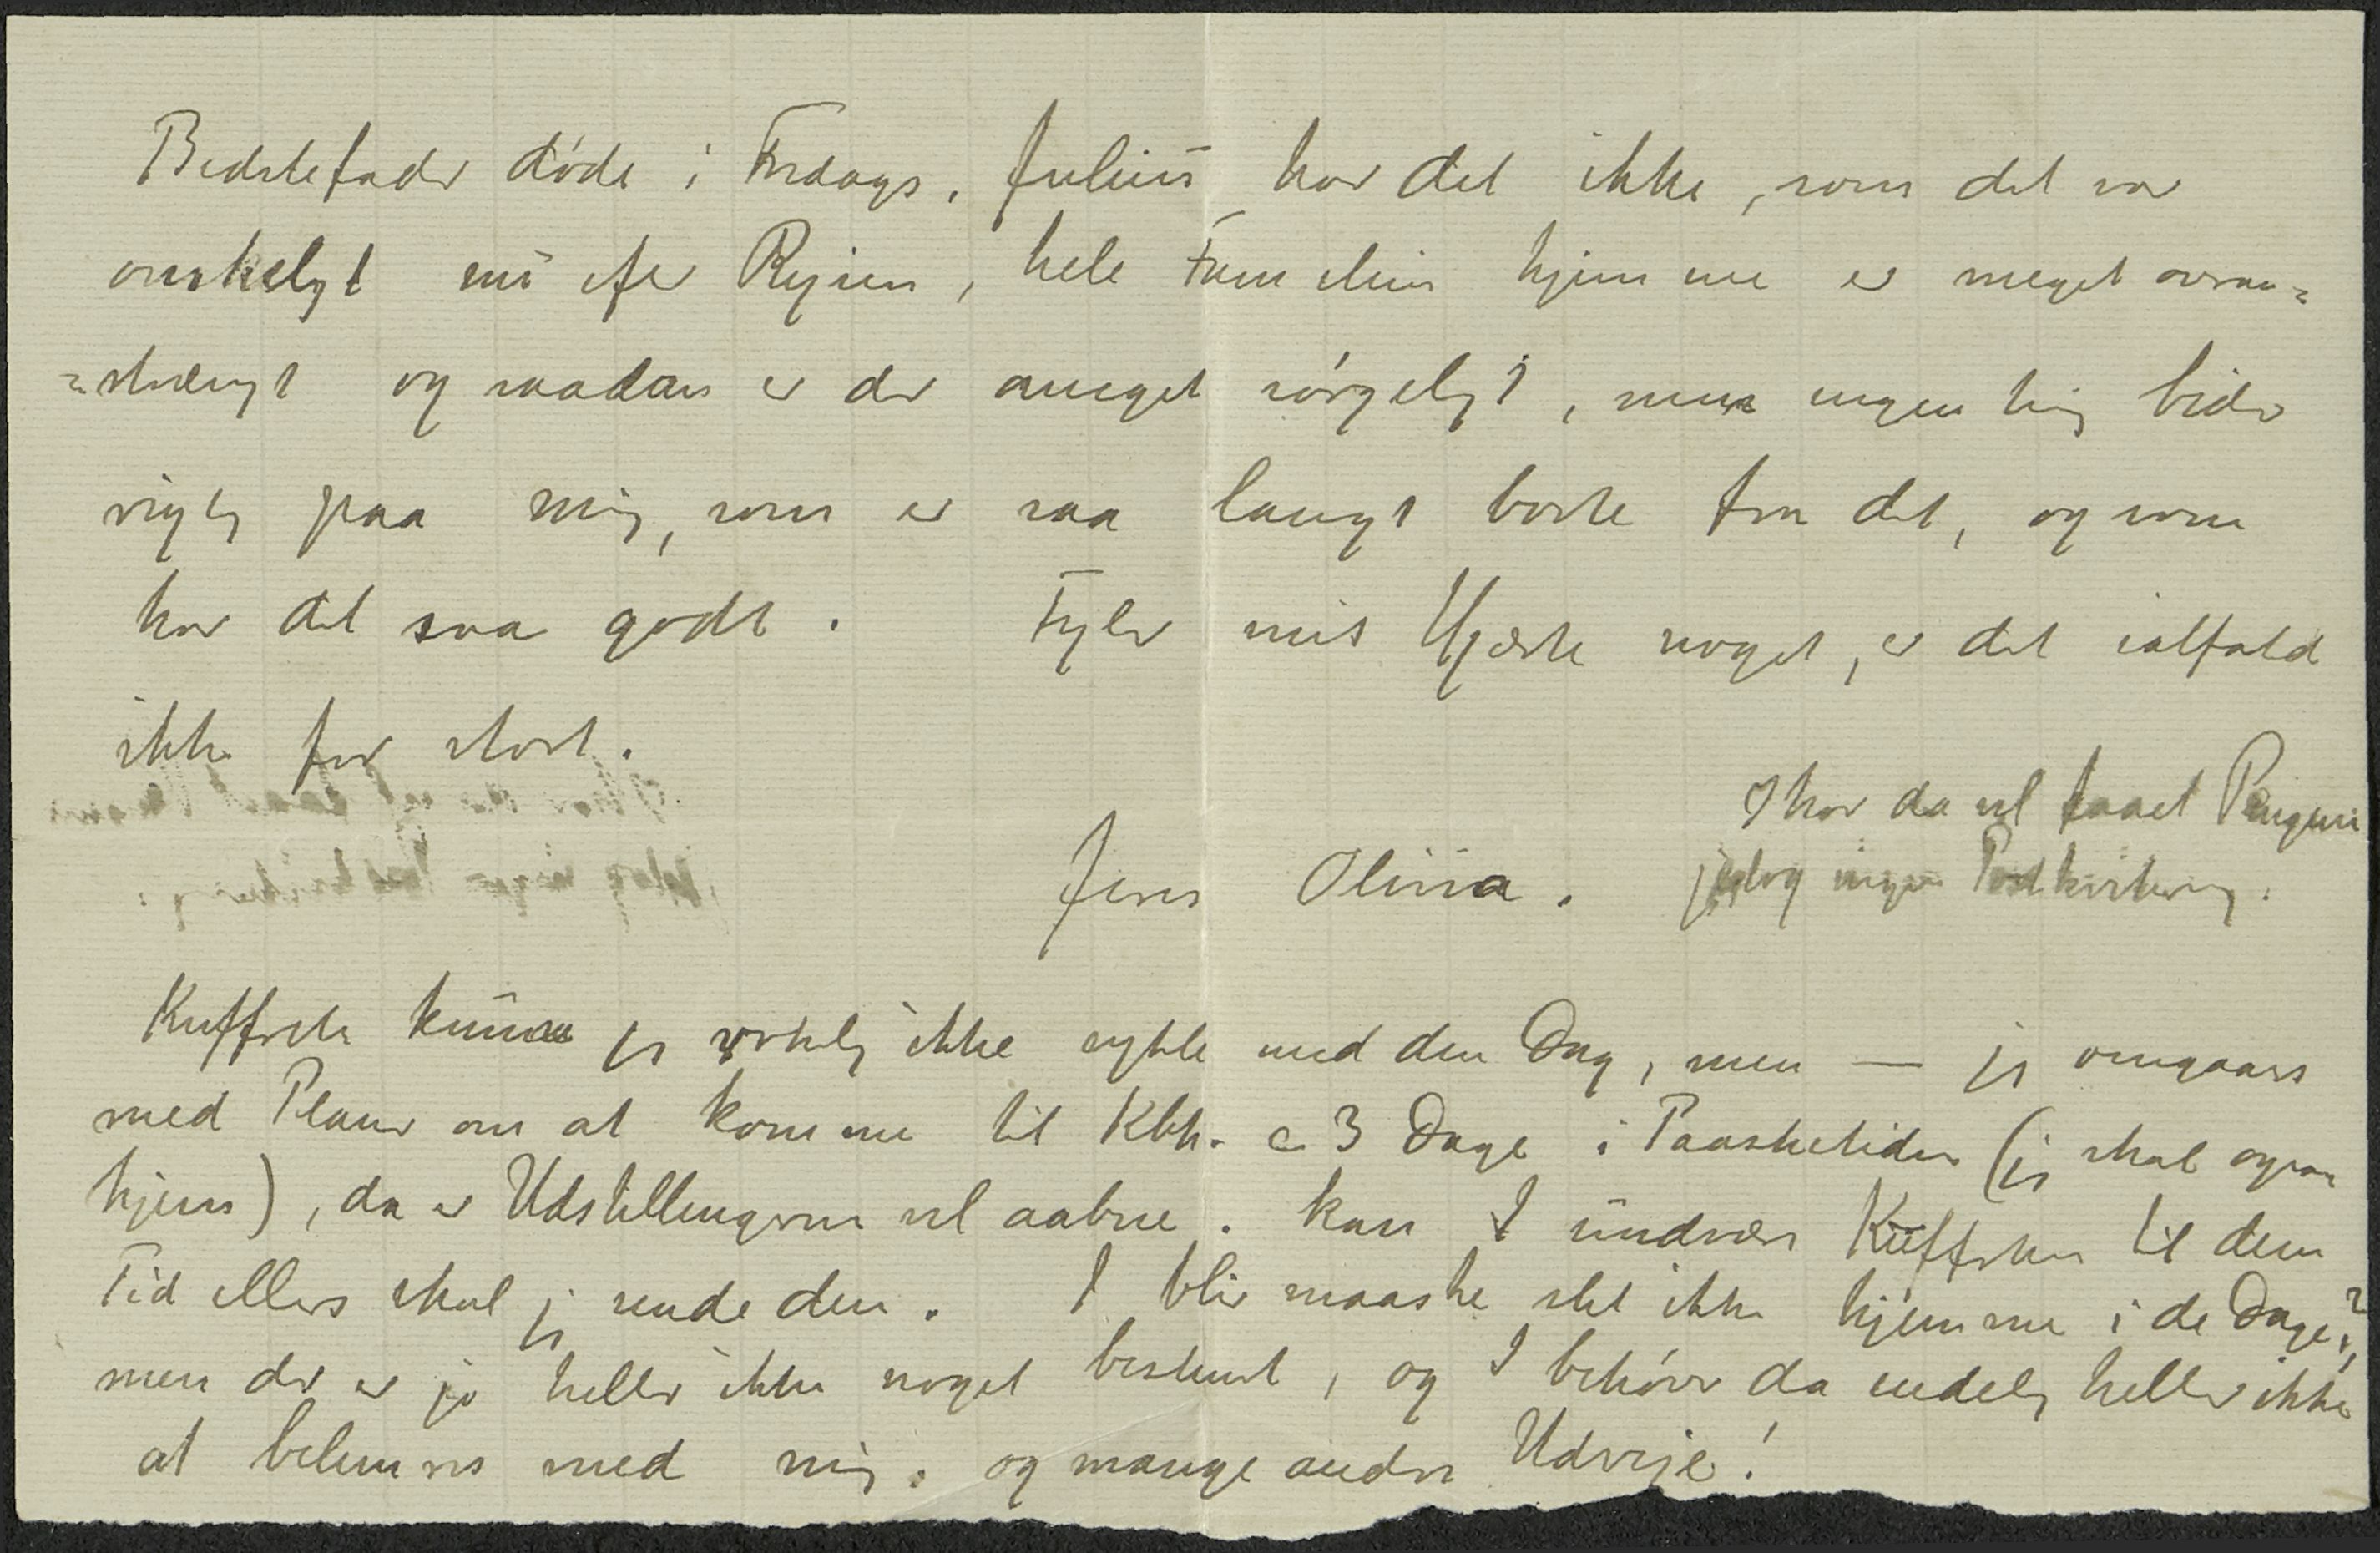 Bedstefader døde i Fredags, Julius har det ikke, som det var
ønskeligt nu efter Rejsen, hele Familien hjemme er meget overan=
=strængt og saadan er der meget sørgeligt, men ingenting bider
rigtig paa mig, som er saa langt borte fra det, og som
har det saa godt. Fejler mit Hjærte noget, er det ialfald
ikke for stort.
I har da vel faaet Pengene
jeg tog ingen Postkvitering.
Jeres Olivia.
Kufferten kunde jeg virkelig ikke rykke ud med den Dag, men — jeg omgaaes
med Planer om at komme til Kbh. c 3 Dage i Paasketiden (jeg skal ogsaa
hjem), da er Udstillingerne vel aabne. Kan I undvære Kufferten til den
Tid ellers skal jeg sende den. I bliver maaske slet ikke hjemme i de Dage?,
men der er jo heller ikke noget bestemt, og I behøver da endelig heller ikke
at belemres med mig. og mange andre Udveje!